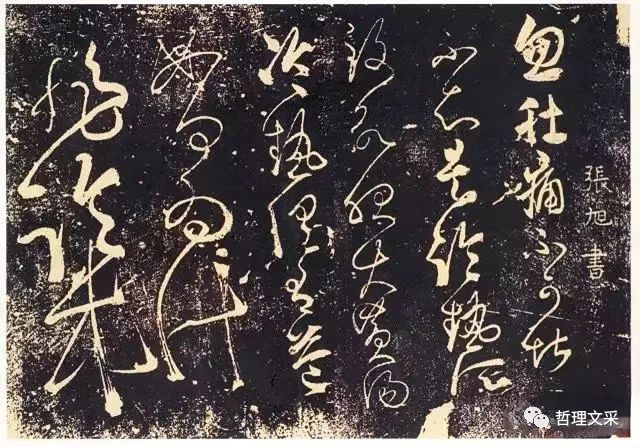 張旭書
忽肚痛不可堪
不知是冷熱所
致欲服大黃湯
冷熱俱有益
如何為計
非臨床
哲理文采